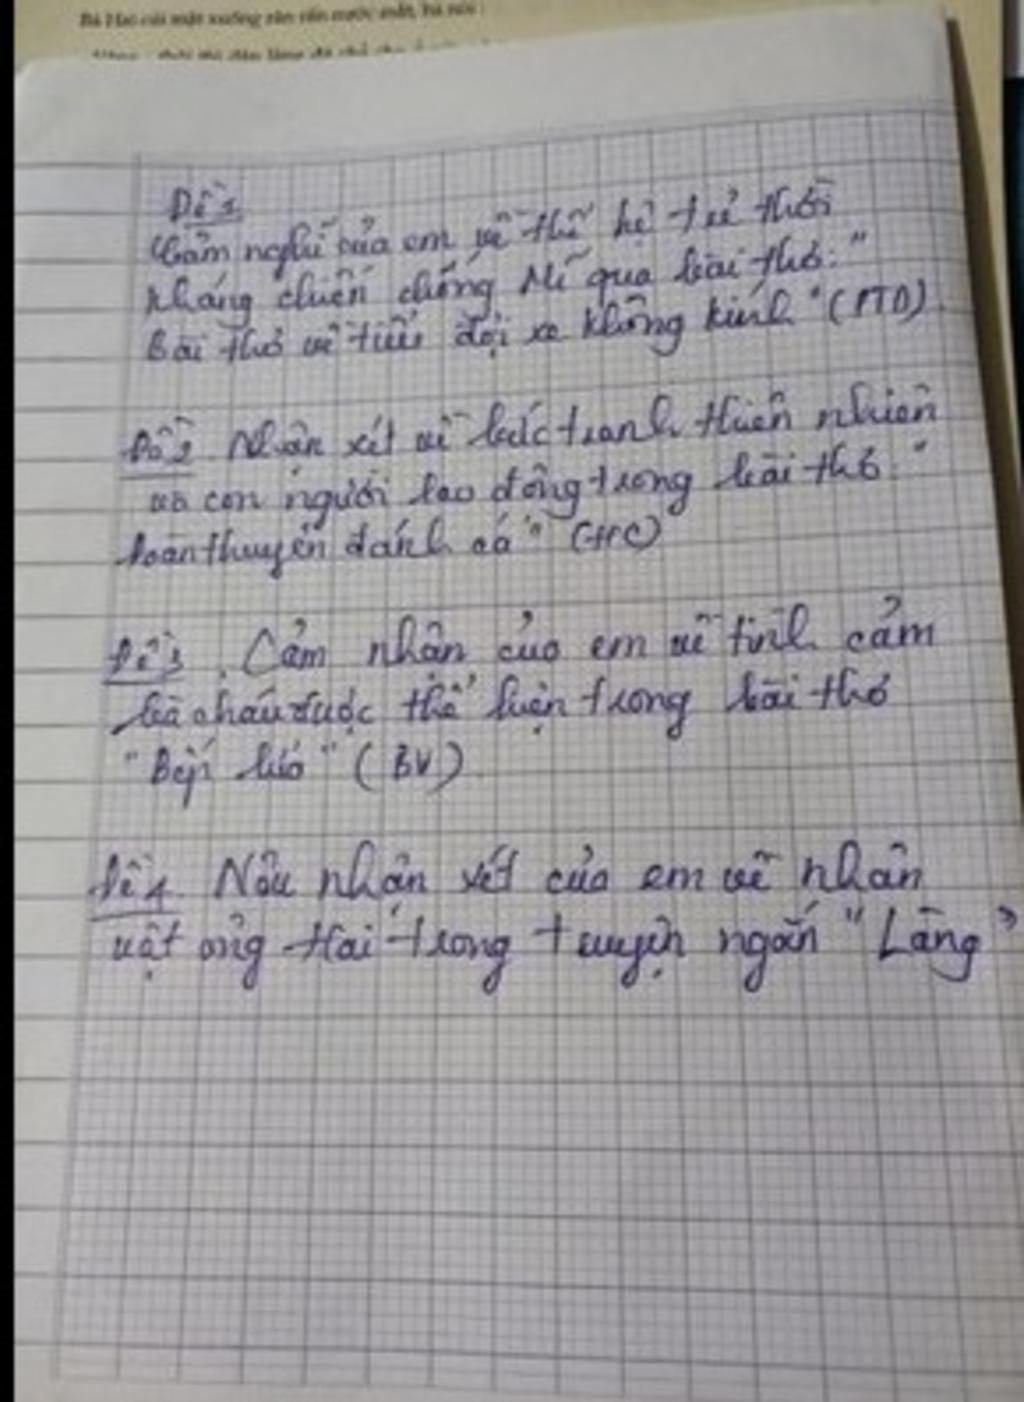 Bà Hai cúi mặt xuống rân rấn nước mắt, bà nói :
Đề 1
Cảm nghĩ của em về thế hệ trẻ thời
kháng chiến chống Mĩ qua bài thơ: "
Bài thơ về tiểu đội xe không kính" (PTD)
Đề 2 Nhận xét về bức tranh thiên nhiên
và con người lao động trong bài thơ "
Đoàn thuyền đánh cá" (HC)
Đề 3. Cảm nhận của em về tình cảm
bà cháu được thể hiện trong bài thơ
"Bếp lửa" (BV)
Đề 4 Nêu nhận xét của em về nhân
vật ông Hai trong truyện ngắn "Làng"